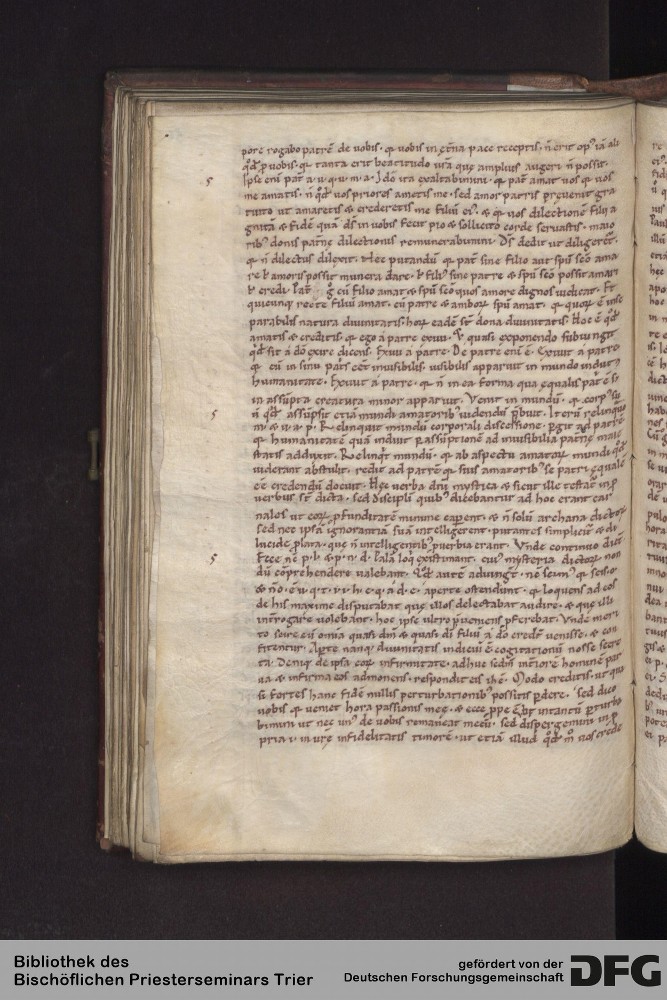 pore rogabo patrē de uobis· qꝛ uobis in ęt̄na pace receptis· n̄ erit op᷒ iā ali
qͦd ꝑ uobis· qꝛ tanta erit beatitudo ur̄a quę amplius augeri n̄ possit·
Ipse eni pat̄ a· u· q· u· m· a· Ido ita exaltabimini· qꝛ pat̄ amat uos qꝛ uos
s
me amatis· n̄ qͦd uos priores ametis me· sed amor patris preuenit gra
tuito ut amaretis & crederetis me filiū ei᷒· & qꝛ uos dilectionē filii a
gnitā & fidē quā ds̄ in uobis fecit pio & sollicito corde seruastis· maio
rib᷒ donis patnę dilectionis remunerabimini· Ds̄ dedit ut diligeret᷒·
qꝛ n̄ dilectus dilexit· Nec putandū qꝛ pat̄ sine filio aut spū sc̄o ama
re ł amoris possit munera dare· ł fili᷒ sine patre & spū sc̄o possit amari
ł credi· cū filio amat & spū sc̄o quos amore dignos iudicat· Et
quicunq; recte filiū amat· cū patre & amboꝝ spū amat· qꝛ quoꝝ ē inse
parabilis natura diuinitatis· hoꝝ eadē st̄ dona diuinitatis· Hoc ē qͦd
amatis & creditis· qꝛ ego á patre exiui· quasi exponendo subiungit
qͦd sit á dō exire dicens· Exiui á patre· De patre eni ē· Exiuit á patre·
qꝛ cū in sinu pat̄s eēt inuisibilis· uisibilis apparuit in mundo indut᷒
humanitate· Exiuit á patre· qꝛ n̄ in ea forma qua equalis pat̄ ē
in assūpta creatura minor apparuit· Venit in mundū· qꝛ corp᷒ suū
s
n̄ qͦd assūpsit etiā mundi amatorib᷒ uidendū p̄buit· Iterū relinquo
m· & ua· a· p· Relinquit mundū corporali discessione· ꝑgit ad patrē·
qꝛ humanitatē quā induit ꝑ assūptionē ad inuisibilia patnę maie
statis adduxit· Relinqͥt mundū· qꝛ ab aspectu amatoꝝ mundi qͦd
uiderant abstulit· redit ad patrē qꝛ suis amatorib᷒ se patri equalē
eē credendū docuit· Hęc uerba dn̄i mystica & sicut ille testat̄ in ꝑ
uerbiis st̄ dicta· sed discipli quib᷒ dicebantur ad hoc erant car
nales ut eoꝝ ꝓfunditatē minime caperent· & n̄ solū archana dictoꝝ
sed nec ipsā ignorantiā suā intelligerent· putantes simpliciter & di
lucide ꝓlata· que n̄ intelligentib᷒ ꝑuerbia erant· Vnde continuo dicūt·
s
Ecce nc̄ p· l· & p· n· d· Palā loq̄ existimant· cui᷒ mysteria dictoꝝ non
dū cōprehendere ualebant· Qd̄ autē adiungt̄· nc̄ scim᷒ qꝛ scis· o·
& nō· ē· u· q· t· i· i· h· c· q· á· d· e· aperte ostendunt· qꝛ loquens ad eos
de his maxime disputabat que illos delectabat audire· & que illi
int̄rogare uolebant· hoc ipse ultro p̄ueniens ꝓferebat· Vnde meri
to scire eū omia quasi dm̄ & quasi di filiū á dō credūt uenisse· & con
fitentur· Apte nanq; diuinitatis indiciū ē cogitationū nosse secre
ta· Deniq; de ipsa eoꝝ infirmitate adhuc sedm̄ int̄iorē hominē par
ua & infirma eos admonens· respondit eis ihc̄· Modo creditis· ut qua
si fortes hanc fidē nullis perturbationib᷒ possitis ꝑdere· sed dico
uobis qꝛ ueniet hora passionis meę· & ecce ꝓpe ē in tantū ꝑturba
bimini ut nec un᷒ de uobis romaneat mecū· sed dispergemini in ꝓ
pria· i· in ur̄e infidelitatis timorē· ut etiā illud qͦd m̊ uos crede
Bibliothek des
Bischöflichen Priesterseminars Trier
gefördert von der
Deutschen Forschungsgemeinschaft
DFG